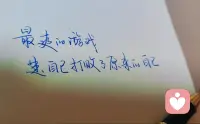 最爽的游戏
是自己打败了原来的自己